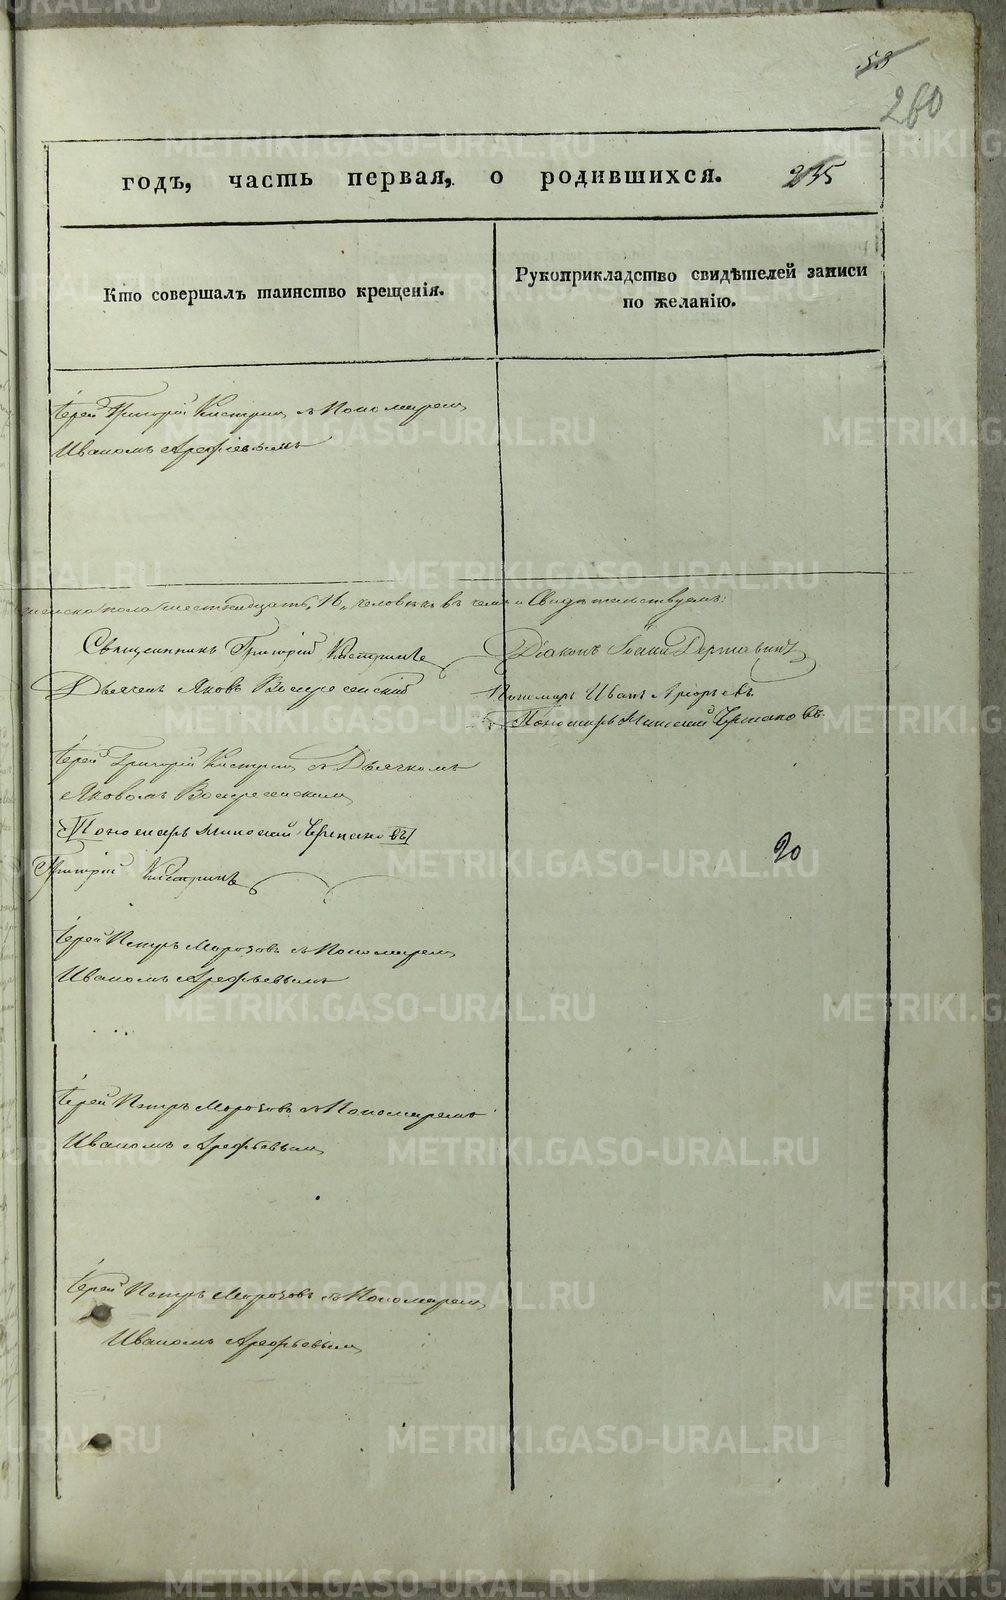 58
260
годъ, часть первая, о родившихся. 235
Кто совершалъ таинство крещенія.
Рукоприкладство свидѣтелей записи
по желанію.
Іерей Григорій Кистринъ съ Пономаремъ
Иваномъ Арефьевымъ
женска пола шестнадцать, 16, человѣкъ въ чемъ и Свидѣтельствуемъ:
Священникъ Григорій Кистринъ
Діаконъ Державинъ
Дьячекъ Яковъ Воскресенскій
Пономарь Иванъ Арефьевъ
Пономарь Ермаковъ
Іерей Григорій Кистринъ съ Дьячкомъ
Яковомъ Воскресенскимъ
Пономарь Ермаковъ
Григорій Кистринъ
20
Іерей Петръ Морозовъ съ Пономаремъ
Иваномъ Арефьевымъ
Іерей Петръ Морозовъ съ Пономаремъ
Иваномъ Арефьевымъ
Іерей Петръ Морозовъ съ Пономаремъ
Иваномъ Арефьевымъ
METRIKI.GASO-URAL.RU